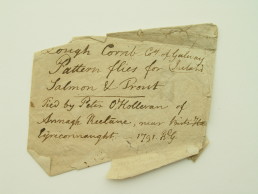 Lough Corrib Co. of Galway
Pattern flies for Ireland
Salmon & Trout
Tied by Peter O'Holleran of
Annagh Keelane, near
Eyreconnaught 1791